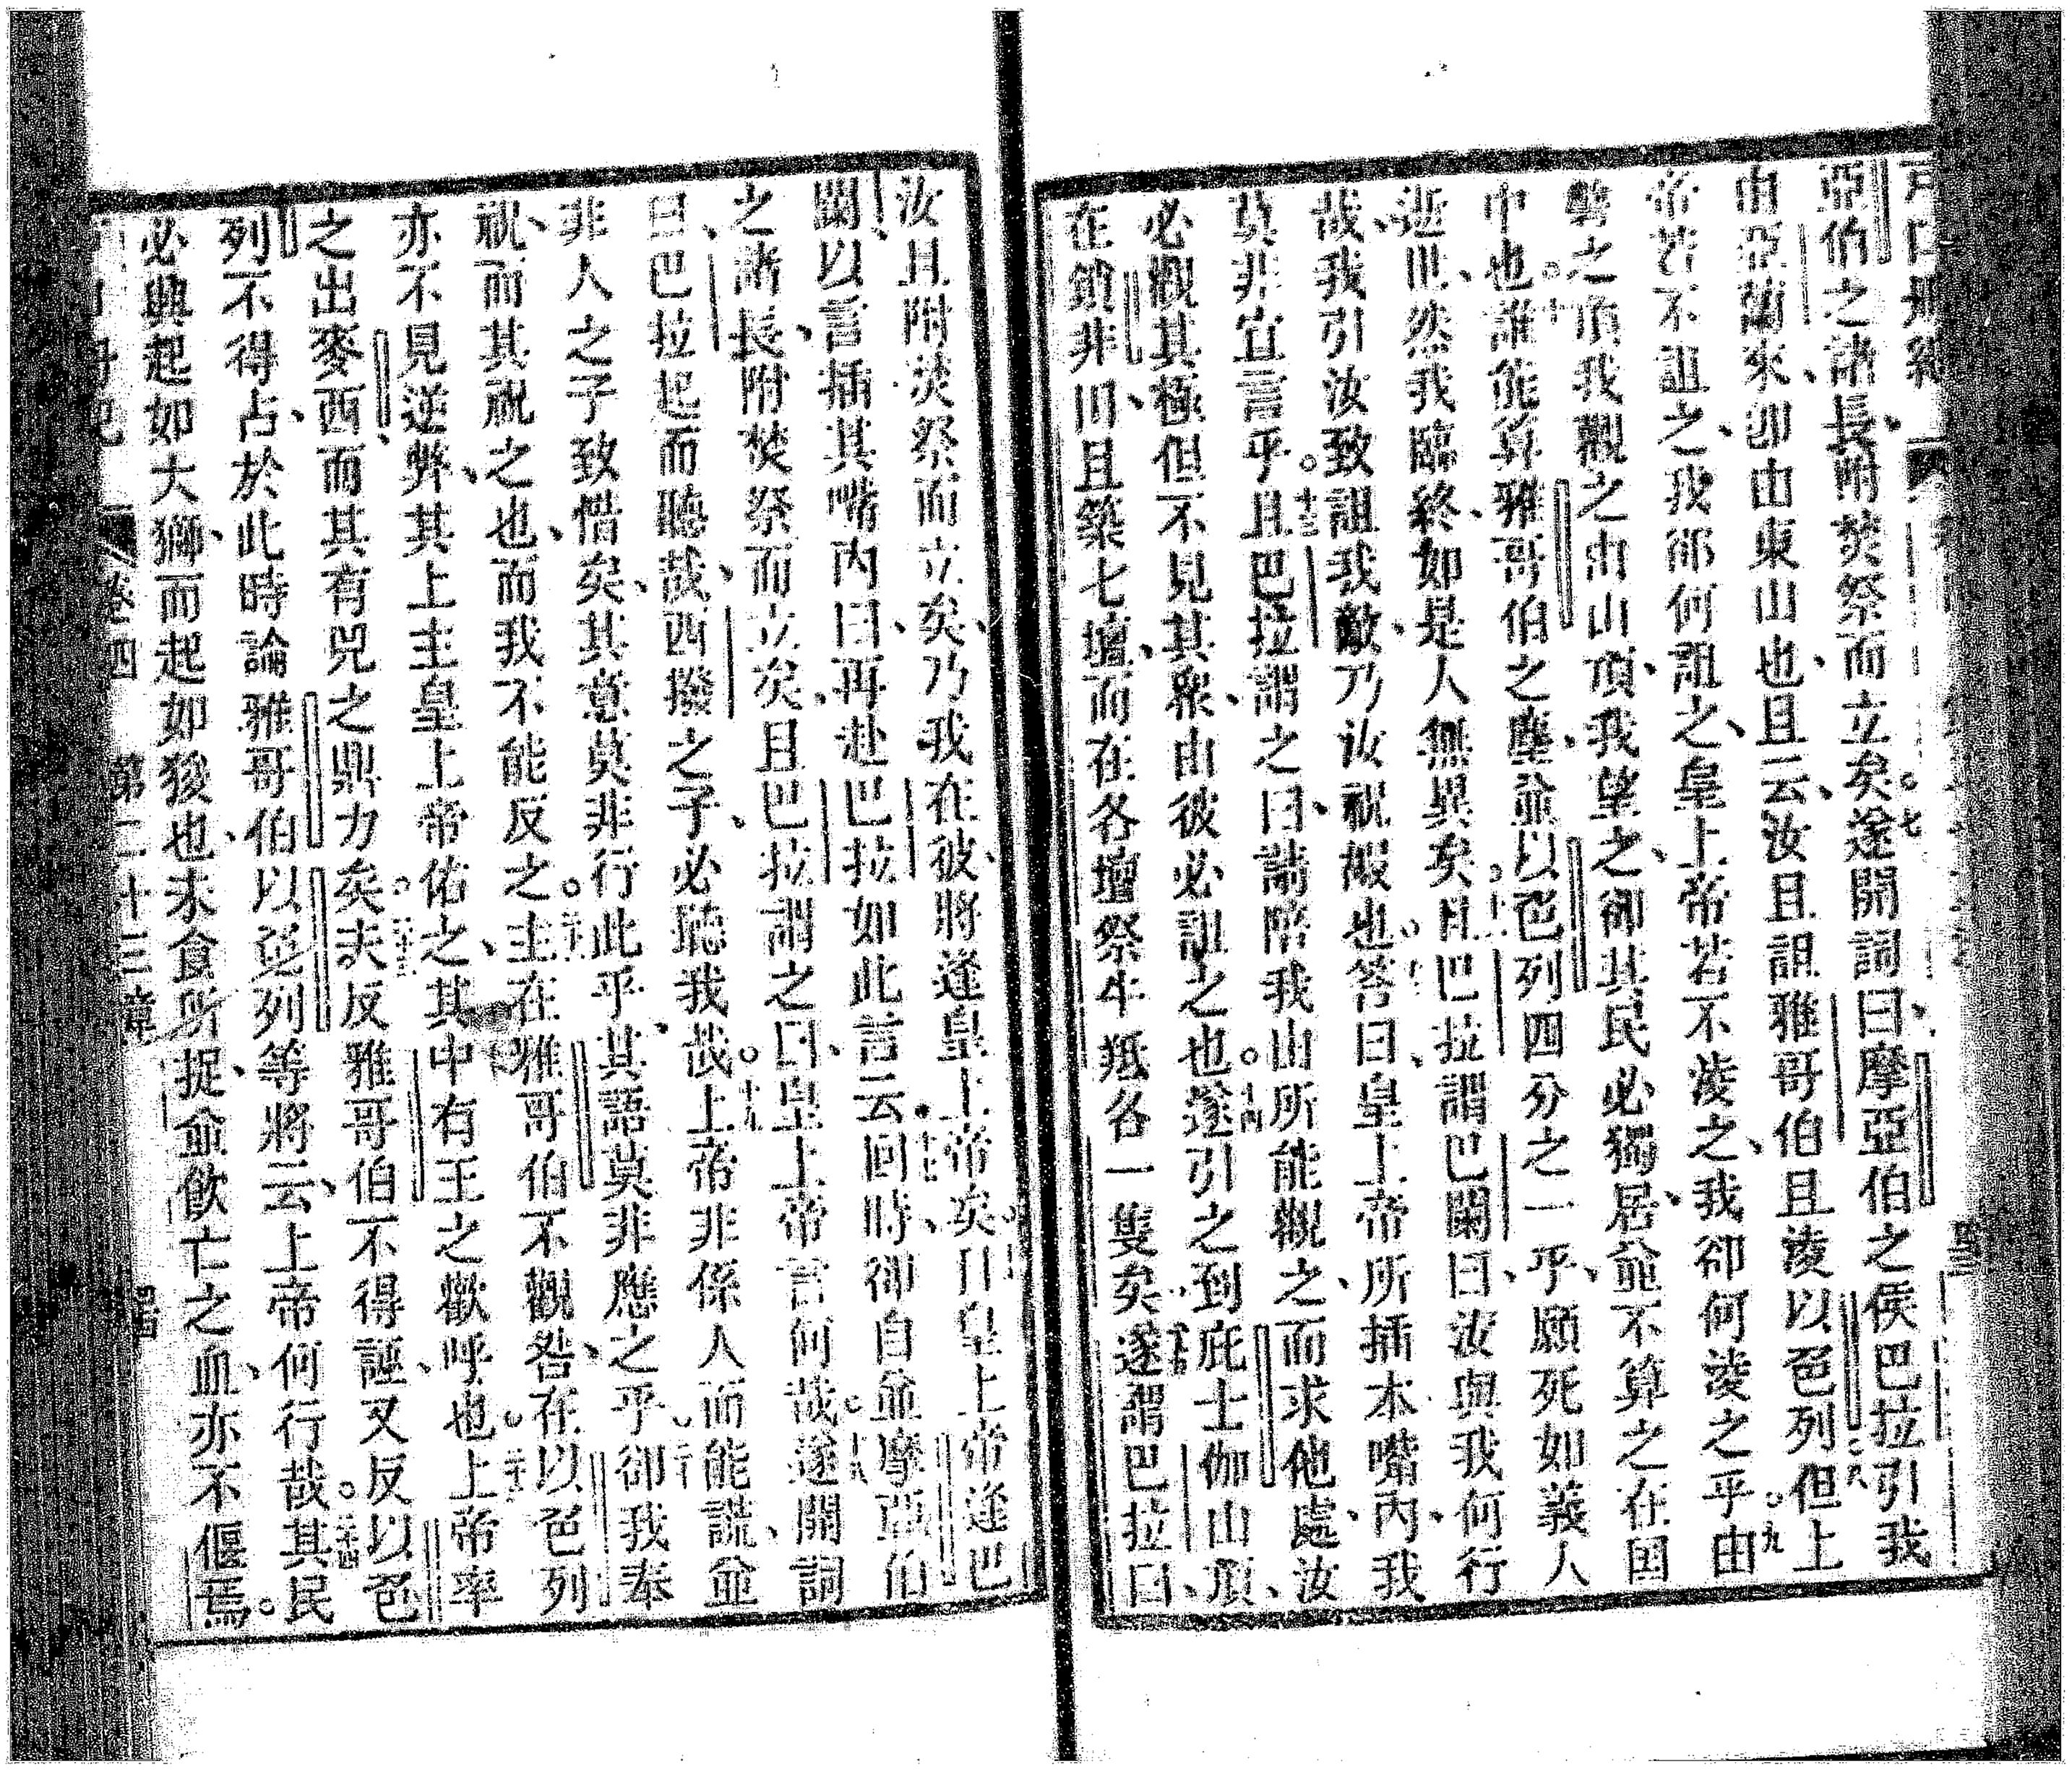 亞伯之諸長、附焚祭而立矣。七遂開詞曰、摩亞伯之侯巴拉引我
由亞蘭來、卽由東山也、且云、汝且詛雅哥伯、且淩以色列、八但上
帝若不詛之、我卻何詛之、皇上帝若不淩之、我卻何淩之乎。九由
磐之頂我觀之、由山頂、我望之、卻其民必獨居、並不算之在国
中也。十誰能算雅哥伯之塵、並以色列四分之一乎、願死如義人
逝世、然我臨終、如是人無異矣。十一且巴拉謂巴闌曰、汝與我何行
哉、我引汝致詛我敵、乃汝祝嘏也。十二答曰、皇上帝所插本嘴內、我
莫非宜言乎。十三且巴拉謂之曰、請陪我由所能觀之、而求他處、汝
必觀其極、但不見其衆、由彼必詛之也。十四遂引之到庇士伽山頂、
在鎖非田、且築七壇、而在各壇祭牛羝各一隻矣、十五遂謂巴拉曰、
汝且附焚祭而立矣、乃我在彼、將逢皇上帝矣。十六皇上帝逢巴
闌、以言插其嘴內曰、再赴巴拉如此言云。十七回時、卻自並摩亞伯
之諸長、附焚祭而立矣、且巴拉謂之曰、皇上帝言何哉。十八遂開詞
曰、巴拉起而聽哉、西撥之子、必聽我哉。十九上帝非係人而能謊、並
非人之子致惜矣、其意莫非行此乎、其語莫非應之乎。二十卻我奉
祝、而其祝之也、而我不能反之。二十一在雅哥伯不觀咎、在以色列
亦不見逆弊、其上主皇上帝佑之、其中有王之歡呼也。二十二上帝率
之出麥西、而其有兕之鼎力矣。二十三夫反雅哥伯不得誣、又反以色
列不得占、於此時論雅哥伯以色列等將云、上帝何行哉。二十四其民
必興起如大獅、而起如狻也、未食所捉、並飮亡之血、亦不偃焉。
卷四 第二十三章